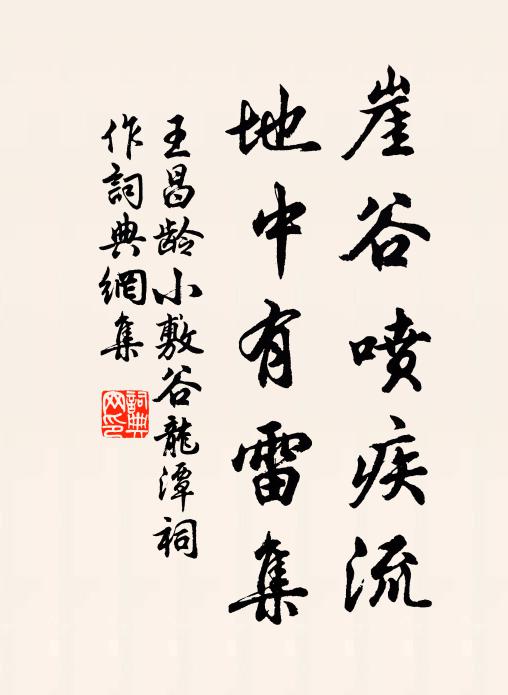 崖谷喷疾流
地中有雷集
王昌龄小敷谷龍潭祠
作詞典網集
詞典
网印